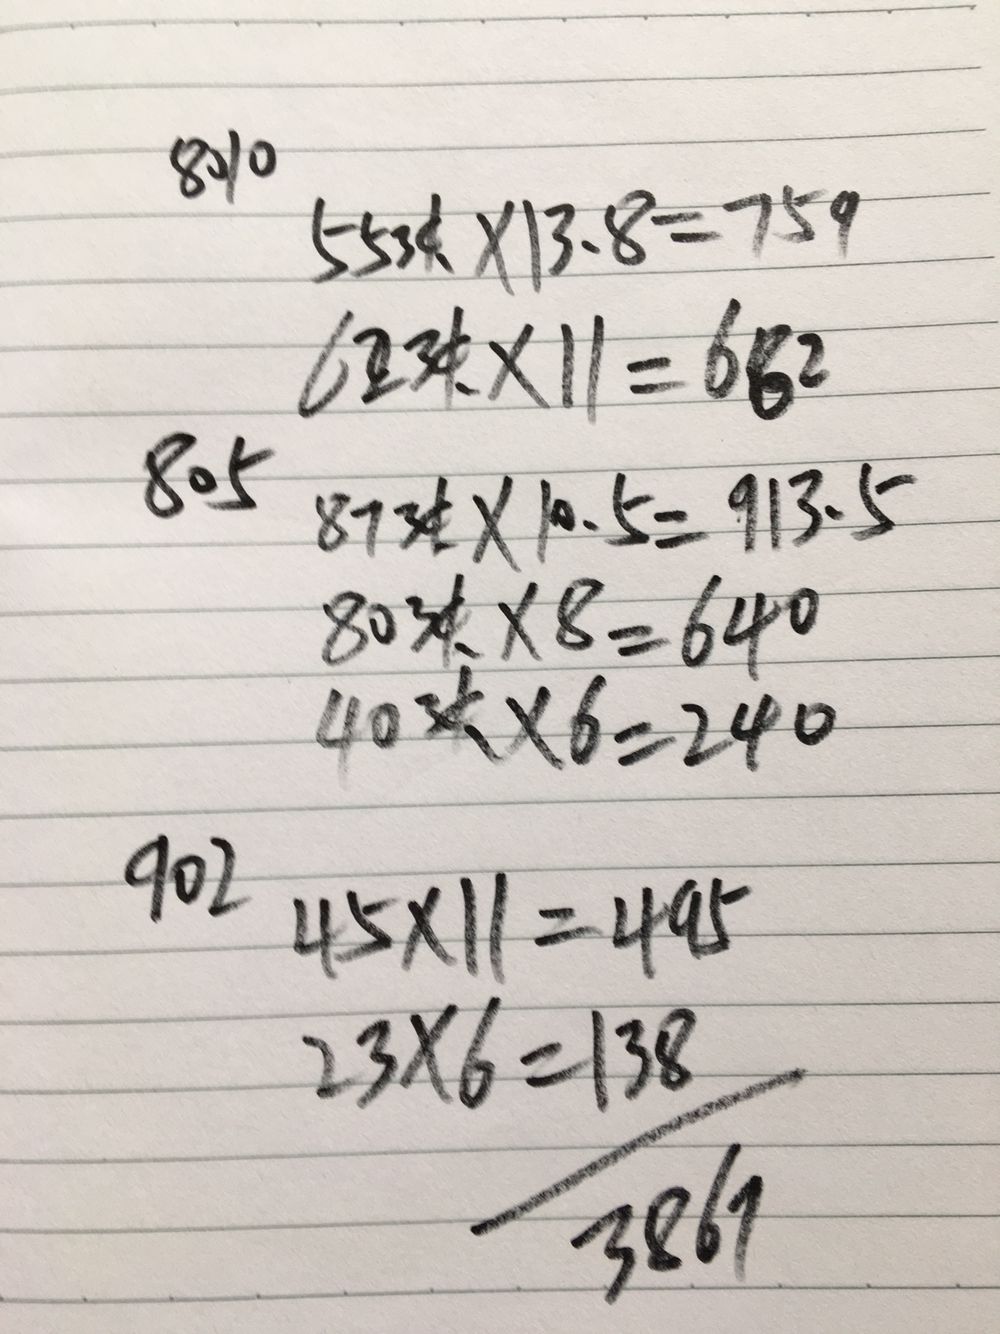 8010
55球×13.8=759
62球×11=682
805
87球×10.5=913.5
80球×8=640
40球×6=240
902
45×11=495
23×6=138
3867